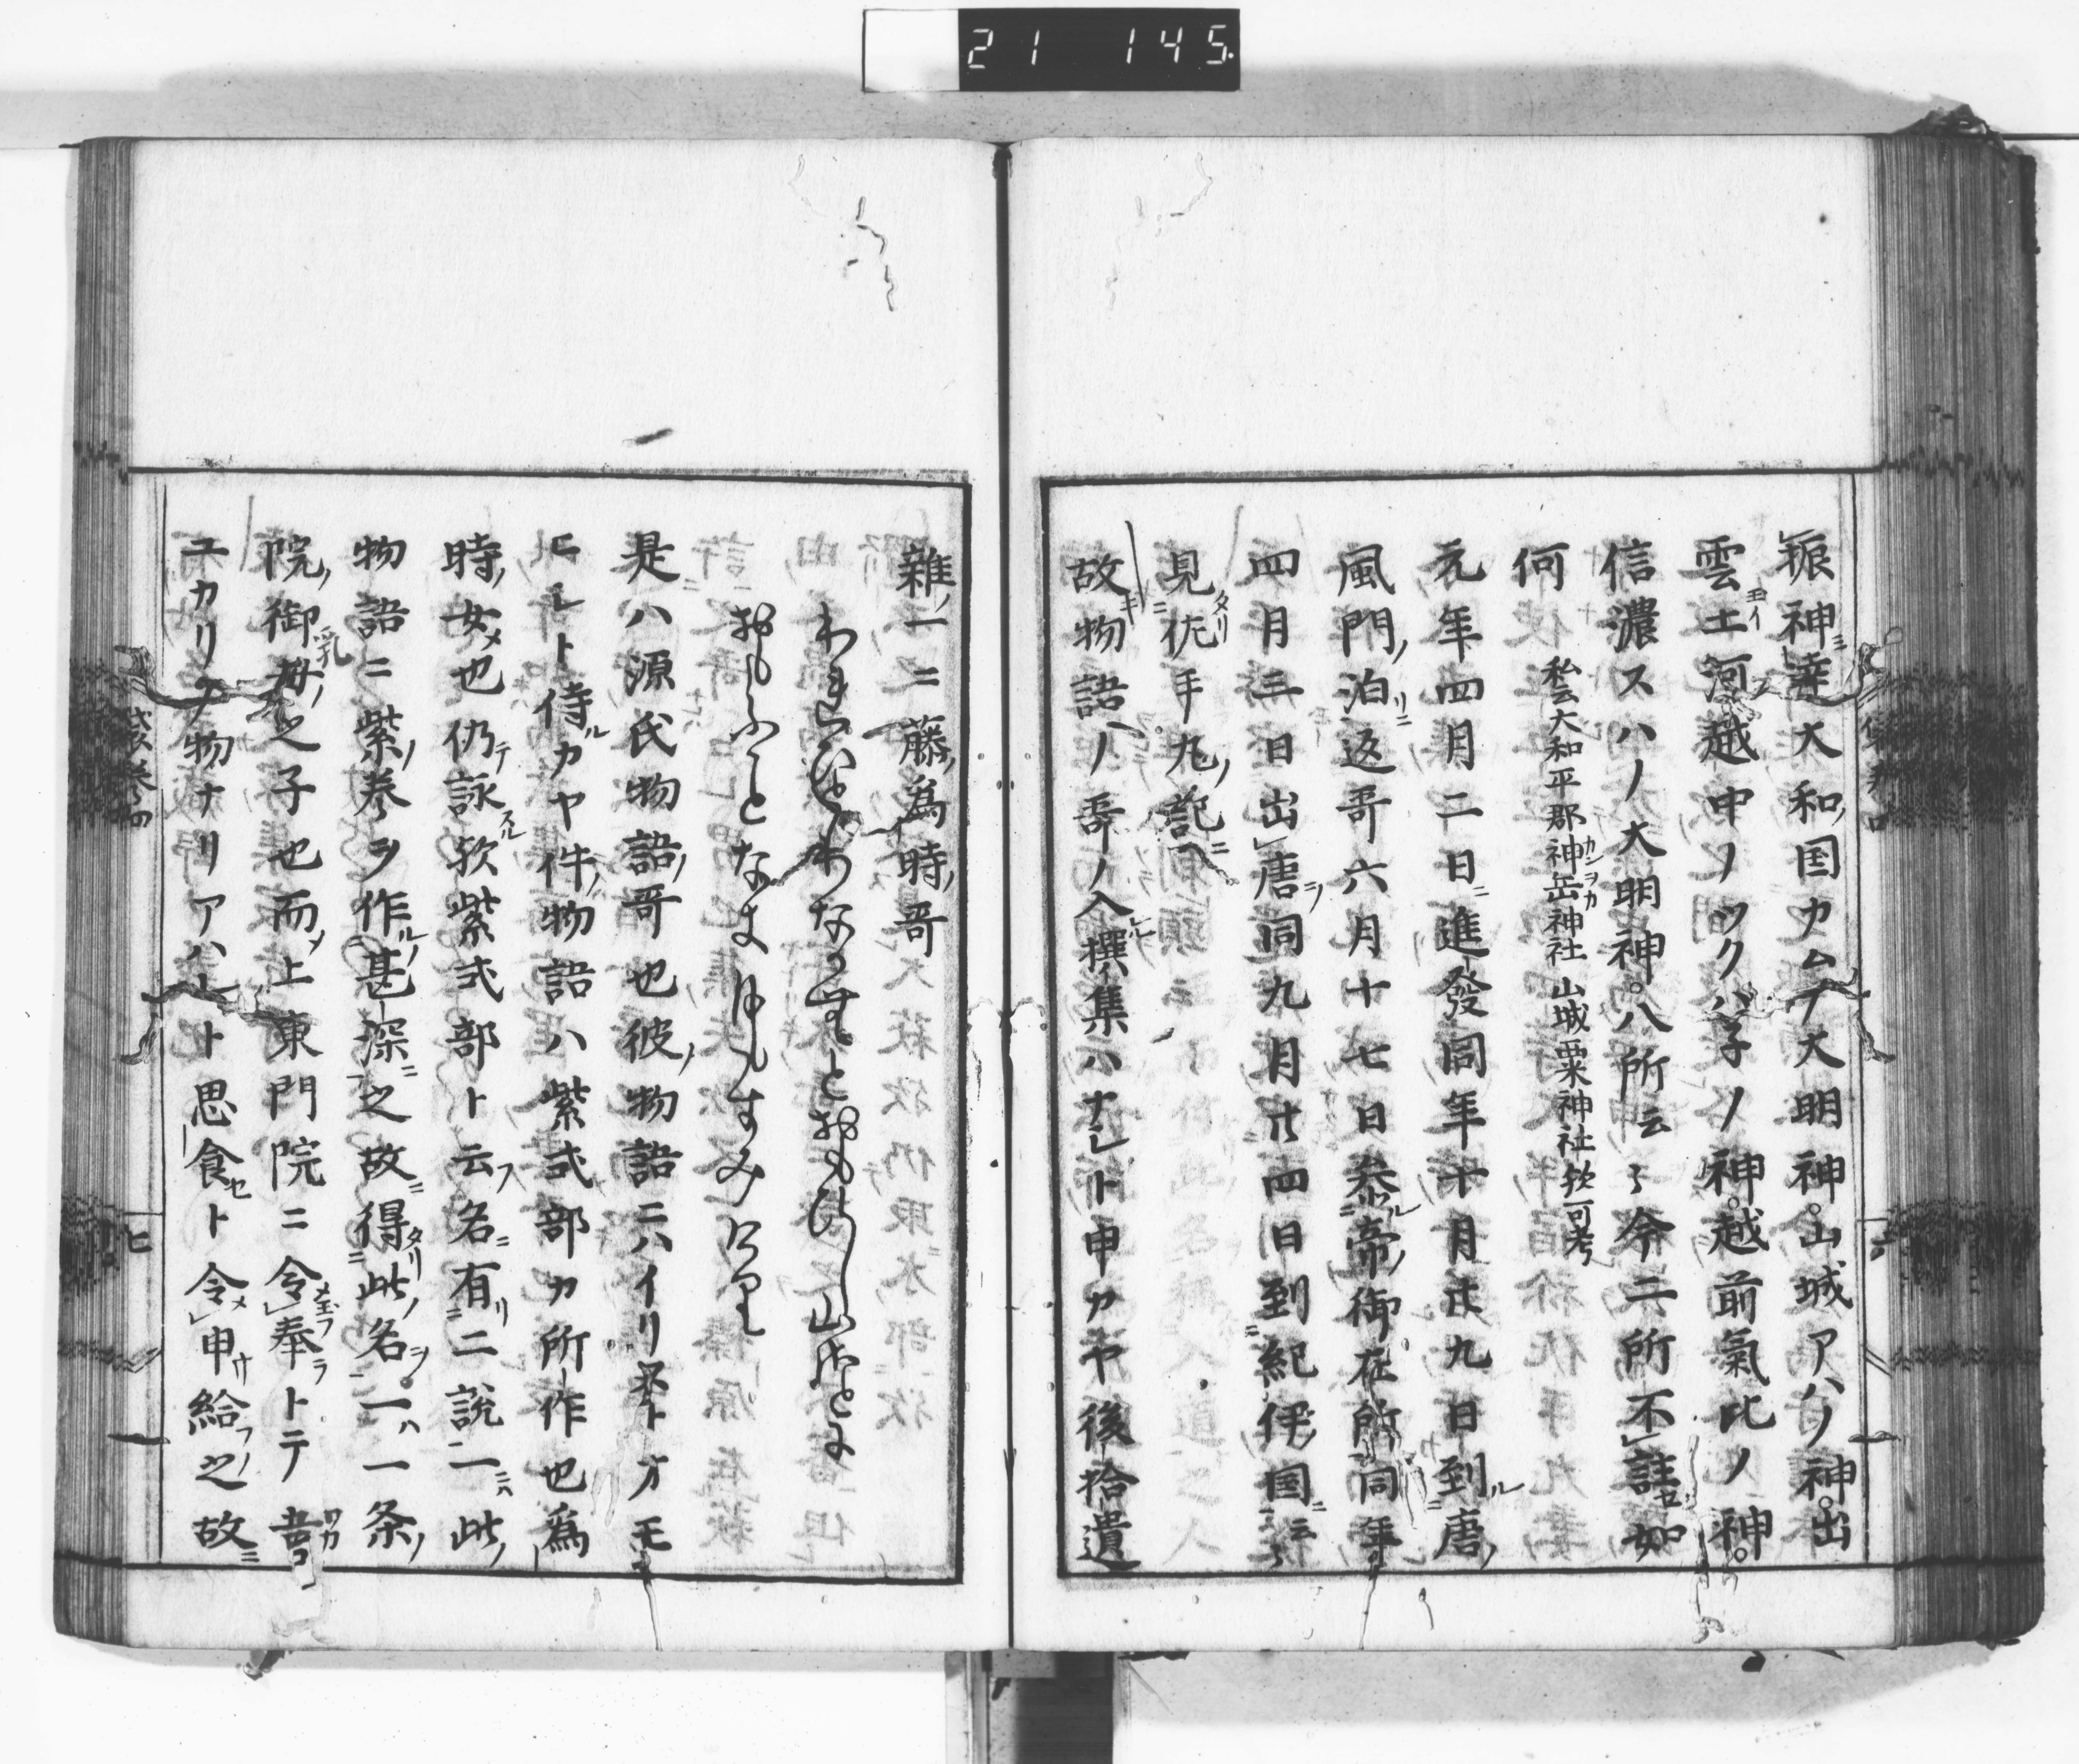 21 145
振神達大和国カムナ大明神。山城アハノ神。出
雲土河越中ノツクバ子ノ神。越前氣比ノ神。
信濃スハノ大明神。八所云々今二所不註如
何 私云大和平郡神岳神社山城粟神社欤可考
元年四月二日進發同年十月廿九日到唐
風門泊返哥六月十七日参帝御在所同年
四月三日出唐同九月廿四日到紀伊国云々
見佐手丸記
故物語ノ哥ノ入撰集ハナシト申カヤ後拾遺
雜一ニ藤為時哥
われひとりなかむとおもひし山さとに
おもふことなき月もすみけり
是ハ源氏物語哥也彼物語ニハイリタトオモ
ヒシト侍カヤ件物語ハ紫式部カ所作也為
時女也仍詠欤紫式部ト云名有二説一此
物語ニ紫巻ヲ作甚深之故得此名一一条
院御母之子也而上東門院ニ令奉トテ吾
ユカリノ物ナリアハレト思食ト令申給之故
袋巻四